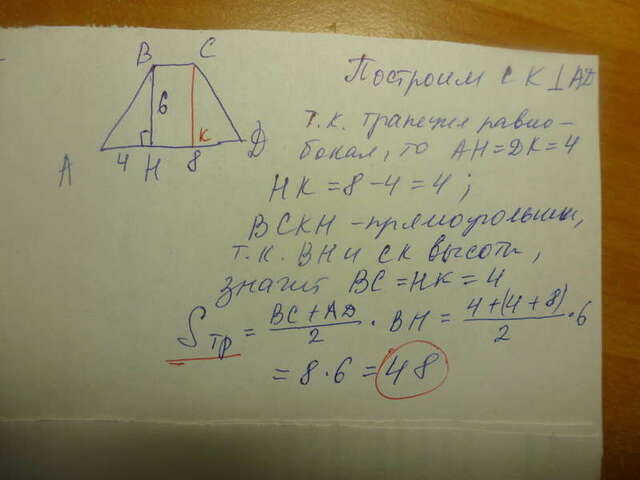 B C
6
K
A 4 H 8 D
Построим CK⊥AD
т.к. трапеция равно-
бокая, то AH=DK=4
HK=8-4=4;
BCKH -прямоугольник,
т.к. BH и CK высоты,
значит BC=HK=4
Sтр = (BC+AD)/2 · BH = (4+(4+8))/2 · 6
= 8·6 = 48